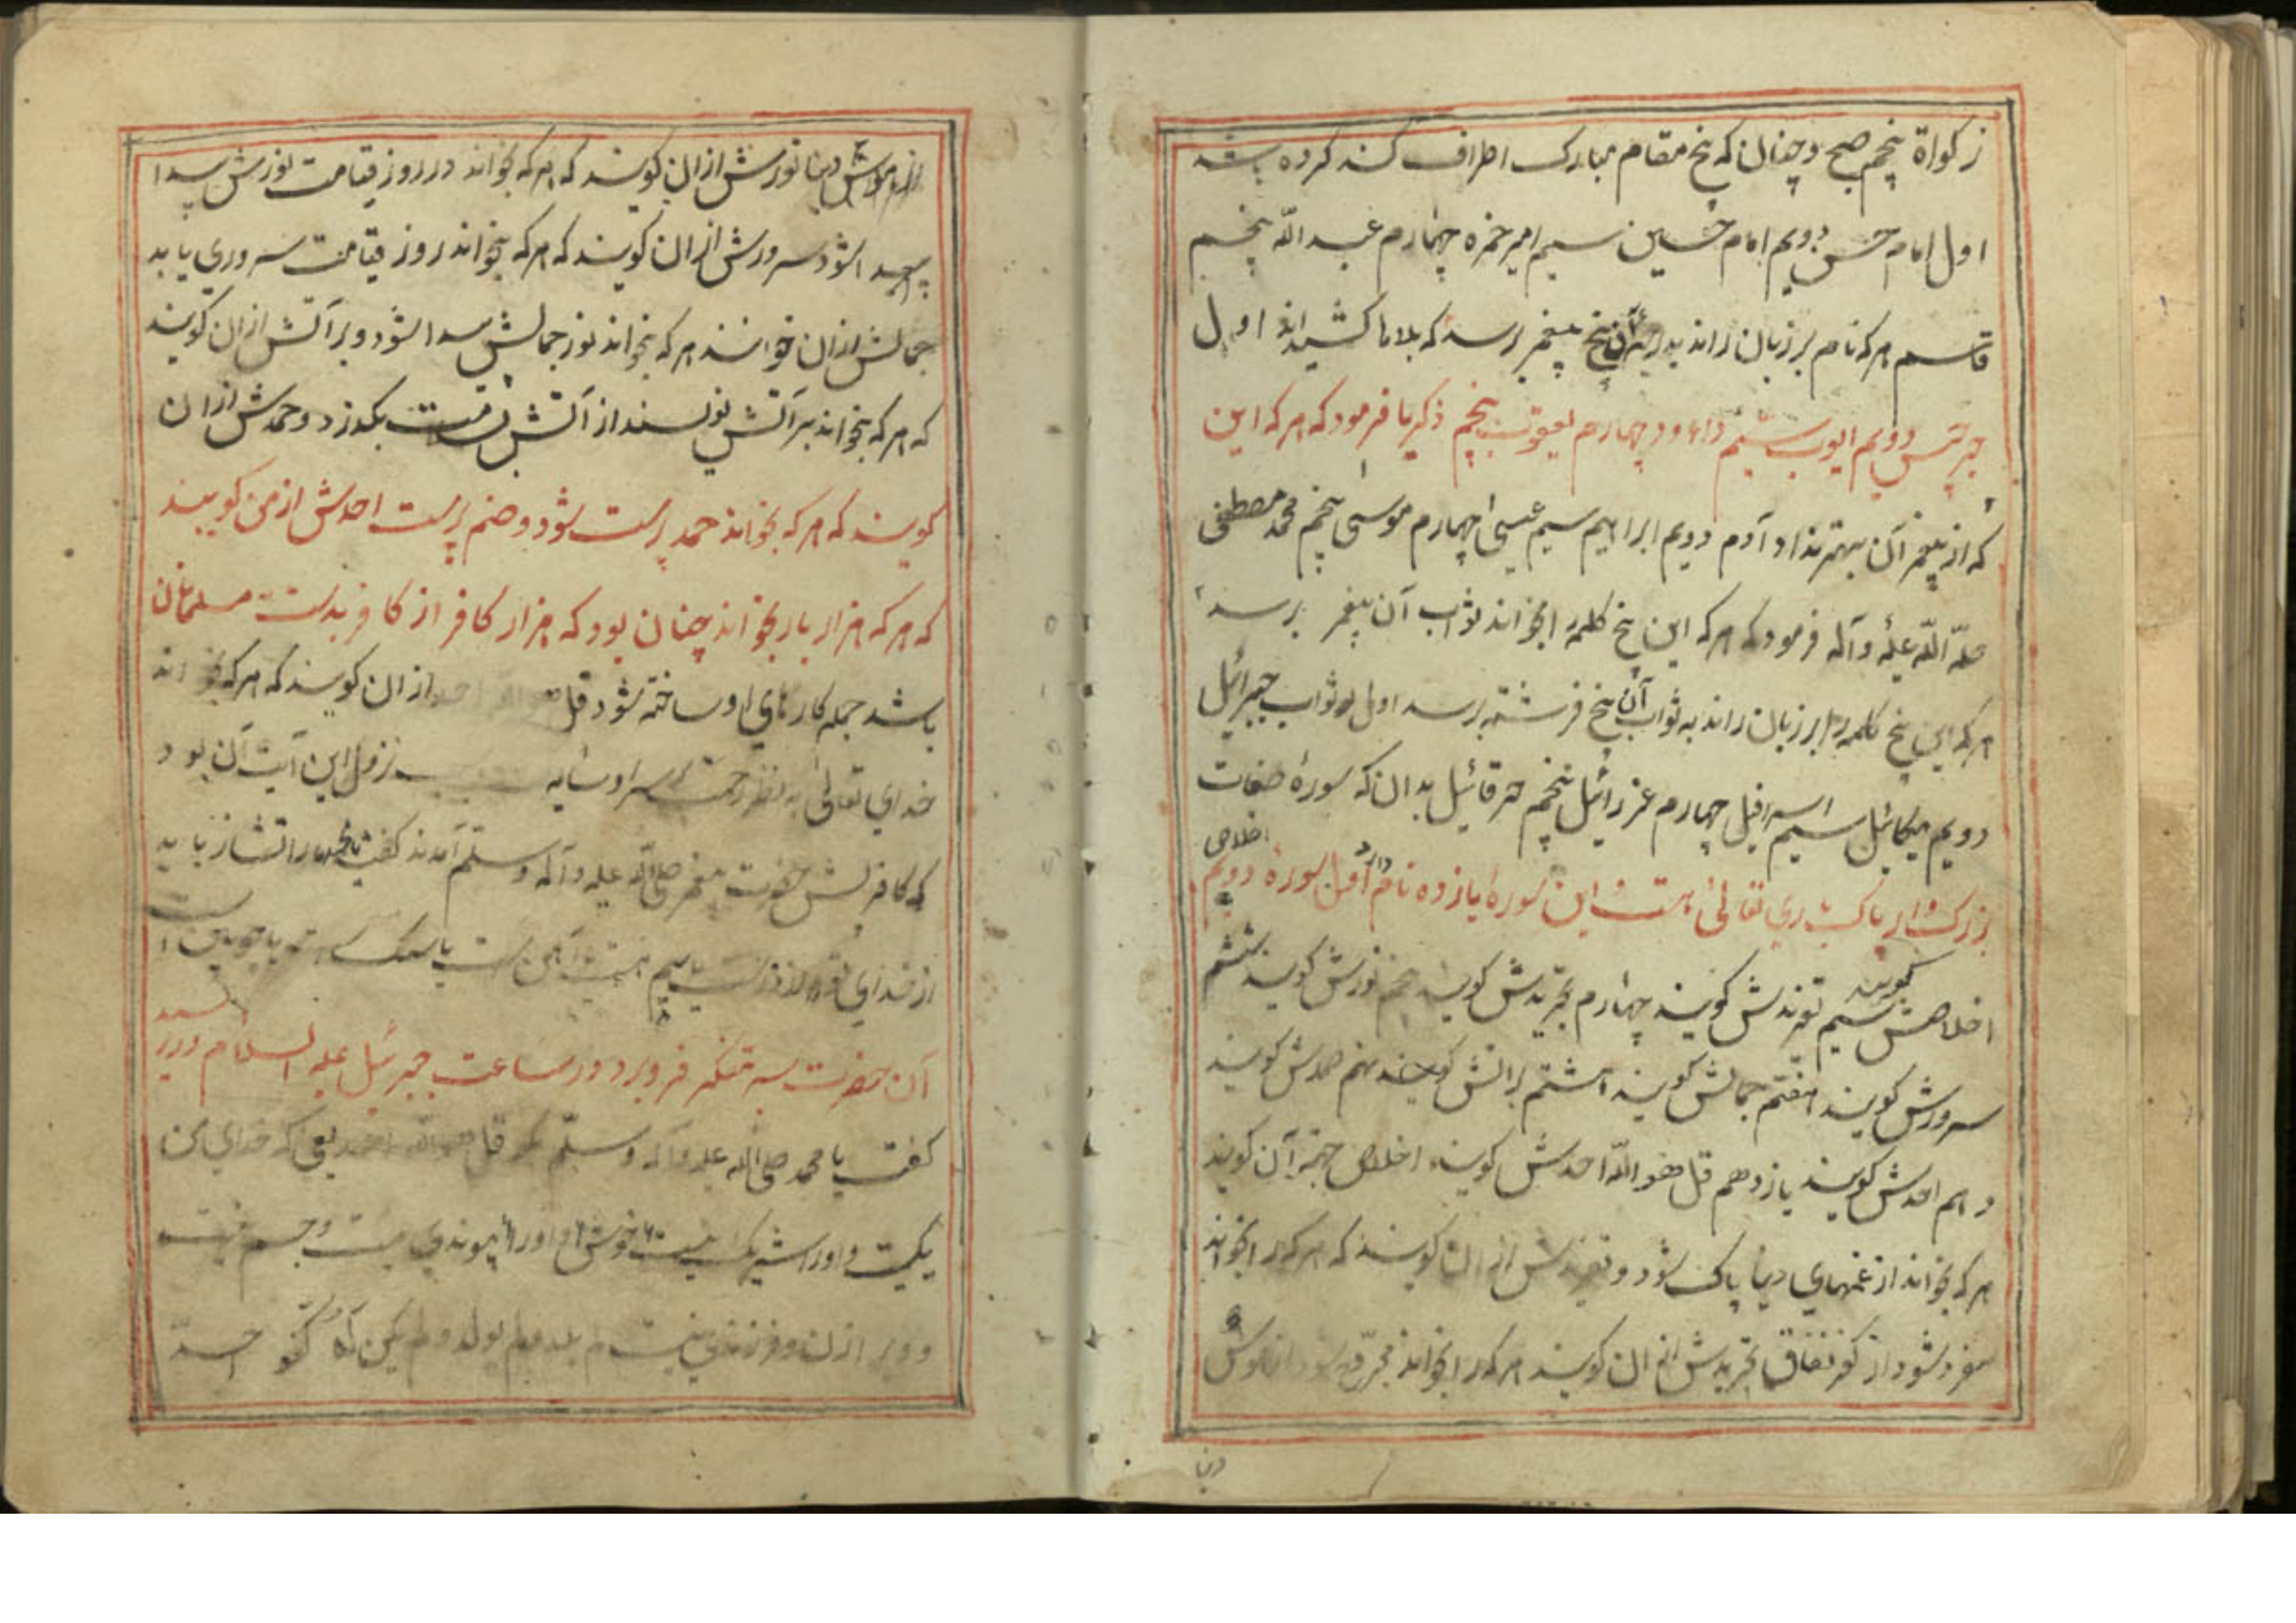 زکواة پنجم صبح و چنان که پنج مقام مبارک اطراف کند کرده باشد
اول امام حسن دویم امام حسین سیم امیر حمزه چهارم عبد الله پنجم
قاسم هر که نام بر زبان راند به درجه آن پنج پیغمبر برسد که بلاها کشیده اند اول
جرجیس دویم ایوب سیم داود چهارم یعقوب پنجم ذکریا فرمود که هر که این
که از پیغمبر آن بهترند اول آدم دویم ابراهیم سیم عیسی چهارم موسی پنجم محمد مصطفی
صلی الله علیه و آله فرمود که هر که این پنج کلمه را بخواند بثواب آن پیغمبر برسد
هر که این پنج کلمه را بر زبان راند به ثواب آن پنج فرشته برسد اول ثواب جبرائیل
دویم میکائیل سیم اسرافیل چهارم عزرائیل پنجم حرقائیل بدان که سورهٔ صفات
اخلاص
بزرگوار پاک باری تعالی است این سوره یازده نام دارد اول سوره دویم
اخلاصش گویند سیم تفریدش گویند چهارم تجریدش گویند پنجم نورش گویند ششم
سرورش گویند هفتم جمالش گویند هشتم براتش گویند نهم حمدش گویند
دهم احدش گویند یازدهم قل هو الله احدش گویند اخلاص جهة آن گویند
هر که بخواند از غمهای دنیا پاک شود و تفریدش از ان گویند که هر که را بخواند
مفرد شود از کفر نفاق تجریدش از ان گویند هر که را بخواند مجرد شود از
دنیا
دنیا نورش از ان گویند که هر که بخواند در روز قیامت نورش پیدا
شود سرورش از ان گویند که هر که بخواند روز قیامت سروری یابد
جمالش از ان خوانند هر که بخواند نور جمالش پیدا شود و برآتش از ان گویند
که هر که بخواند برآتش نویسند از آتش بگذرد و حمدش از ان
گویند که هر که بخواند حمد پرست شود و صنم پرست احدش از من گویند
که هر که هزار بار بخواند چنان بود که هزار کافر از کافر بدست مسلمانان
باشد جمله کارهای او ساخته شود قل از ان گویند که هر که بخواند
خدای تعالی به نظر رحمت نزول این آیت آن بود
که کافر پیش حضرت پیغمبر صلی الله علیه و آله وسلم آمدند گفت
از خدای تو از زرست یا سیم است یا آهن است یا سنگ یا چوبین است
آن حضرت سر به تفکر فرو برد در ساعت جبرئیل علیه السلام در رسید
گفت یا محمد صلی الله علیه و آله وسلم بگو قل هو الله احد یعنی که خدای من
یکیست و او را شریک نیست خویش و او را پیوندی نیست و جسم نیست
و ویرا زن و فرزندی نیست لم یلد ولم یولد ولم یکن له کفوا احد